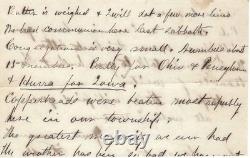 Butter is weighed & I will dot a few more lines
We had communion here last sabbath.
Congregation is very small, numbers about
15 members. Rally for Ohio & Pennsylvn
& Hurra for Iowa.
Copperheads were beaten most awfully
here in our township.
the greatest we ever had
the weather has been so had